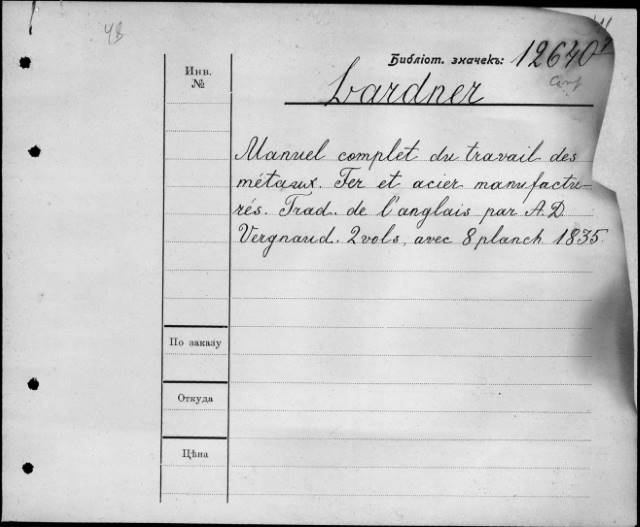 48
Библіот. значекъ: 12640
Инв.
№
Lardner
Manuel complet du travail des
métaux. Fer et acier manufactu-
rés. Trad. de l'anglais par A.D.
Vergnaud. 2 vols, avec 8 planch 1835.
По заказу
Откуда
Цѣна